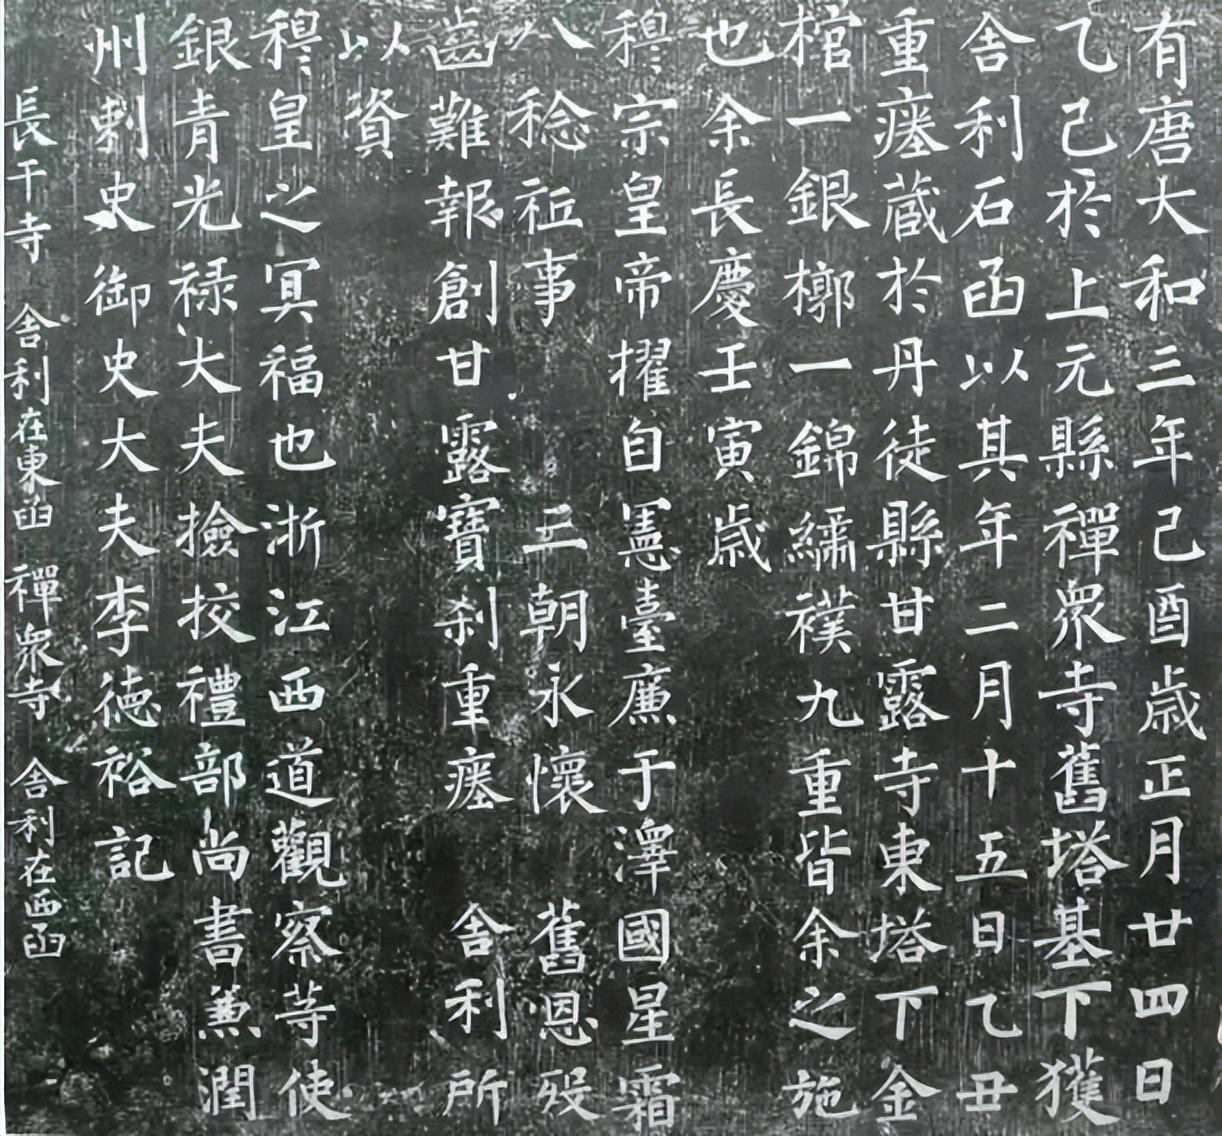 有唐大和三年己酉歲正月廿四日
乙己於上元縣禪衆寺舊塔基下獲
舍利石函以其年二月十五日乙丑
重瘞藏於丹徒縣甘露寺東塔下金
棺一銀槨一錦繡襆九重皆余之施
也余長慶壬寅歲
穆宗皇帝擢自憲臺廉于澤國星霜
八稔祗事 三朝永懷 舊恩歿
齒難報創甘露寶刹重瘞 舍利所
以資
穆皇之冥福也浙江西道觀察等使
銀青光禄大夫撿挍禮部尚書兼潤
州刺史御史大夫李德裕記
長干寺 舍利在東函 禪衆寺 舍利在西函